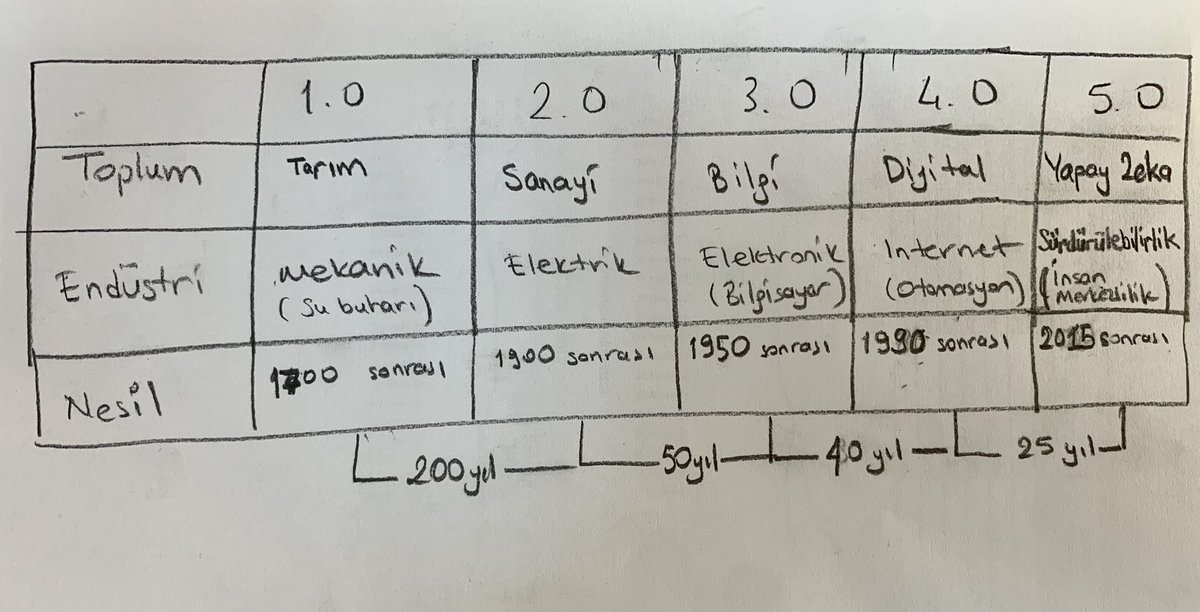 1.0 2.0 3.0 4.0 5.0
Toplum Tarım Sanayi Bilgi Dijital Yapay Zeka
Endüstri Mekanik Elektrik Elektronik Internet Sürdürülebilirlik
(Su buharı) (Bilgisayar) (Otomasyon) (İnsan
Merkezilik)
Nesil 1700 sonrası 1900 sonrası 1950 sonrası 1990 sonrası 2015 sonrası
200 yıl 50 yıl 40 yıl 25 yıl